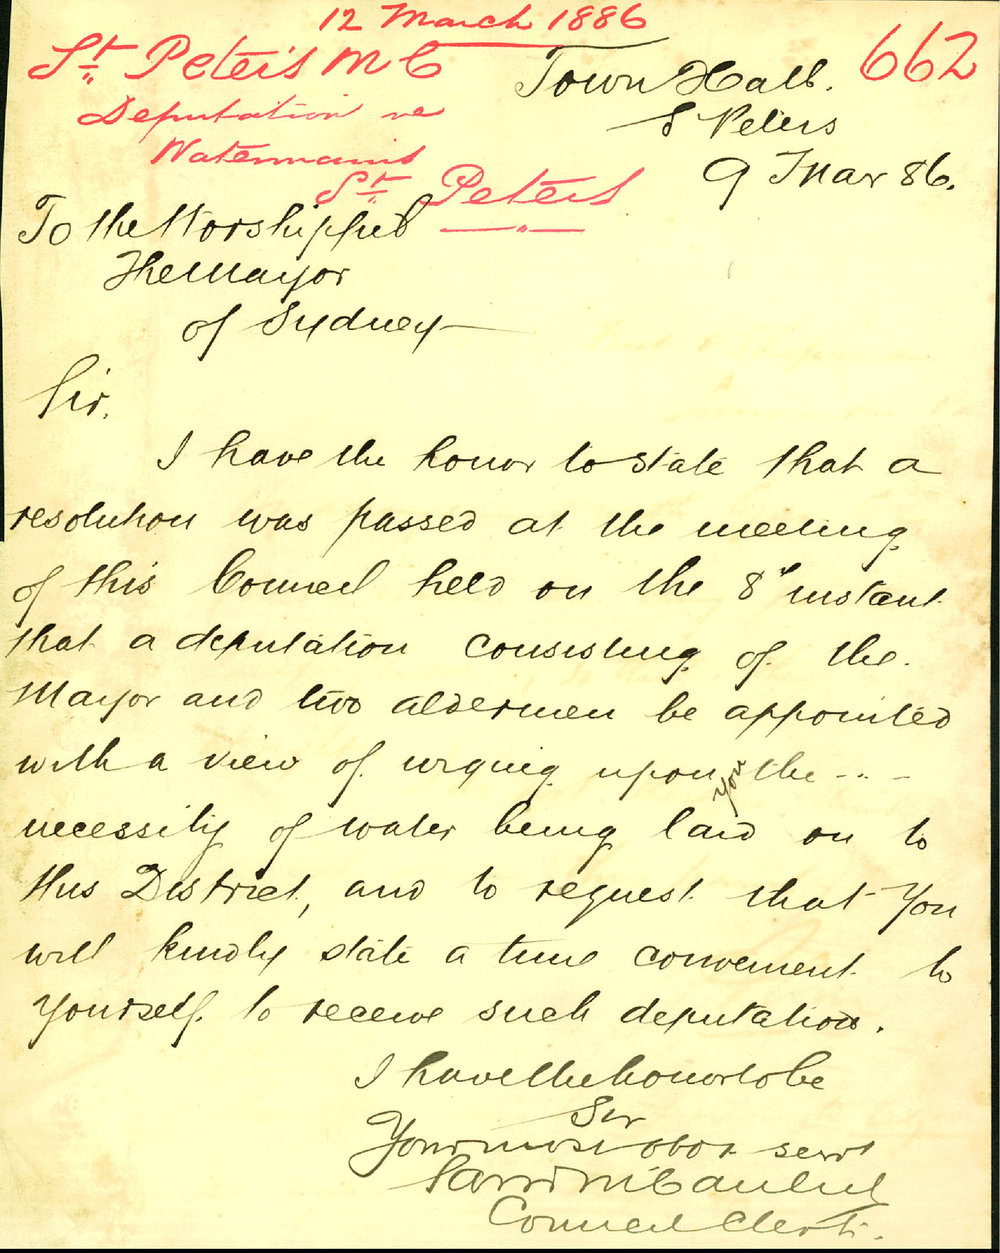 12 March 1886
662
St Peters M C
Deputation re
Watermains
St Peters
Town Hall.
S Peters
9 Mar 86.
To the Worshipful
The Mayor
of Sydney
Sir.
I have the honor to state that a
resolution was passed at the meeting
of this Council held on the 8th instant
that a deputation consisting of the
Mayor and two aldermen be appointed
with a view of urging upon you the
necessity of water being laid on to
this District, and to request that You
will kindly state a time convenient to
yourself to receive such deputation.
I have the honor to be
Sir
Your most obdt servt
Council Clerk.